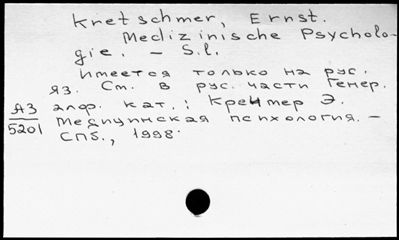 Kretschmer, Ernst.
Medizinische Psycholo-
gie. – S.l.
Имеется только на рус.
яз. См. в рус. части Генер.
АЗ алф. кат.: Кречмер Э.
5201 Медицинская психология. –
СПб., 1998.